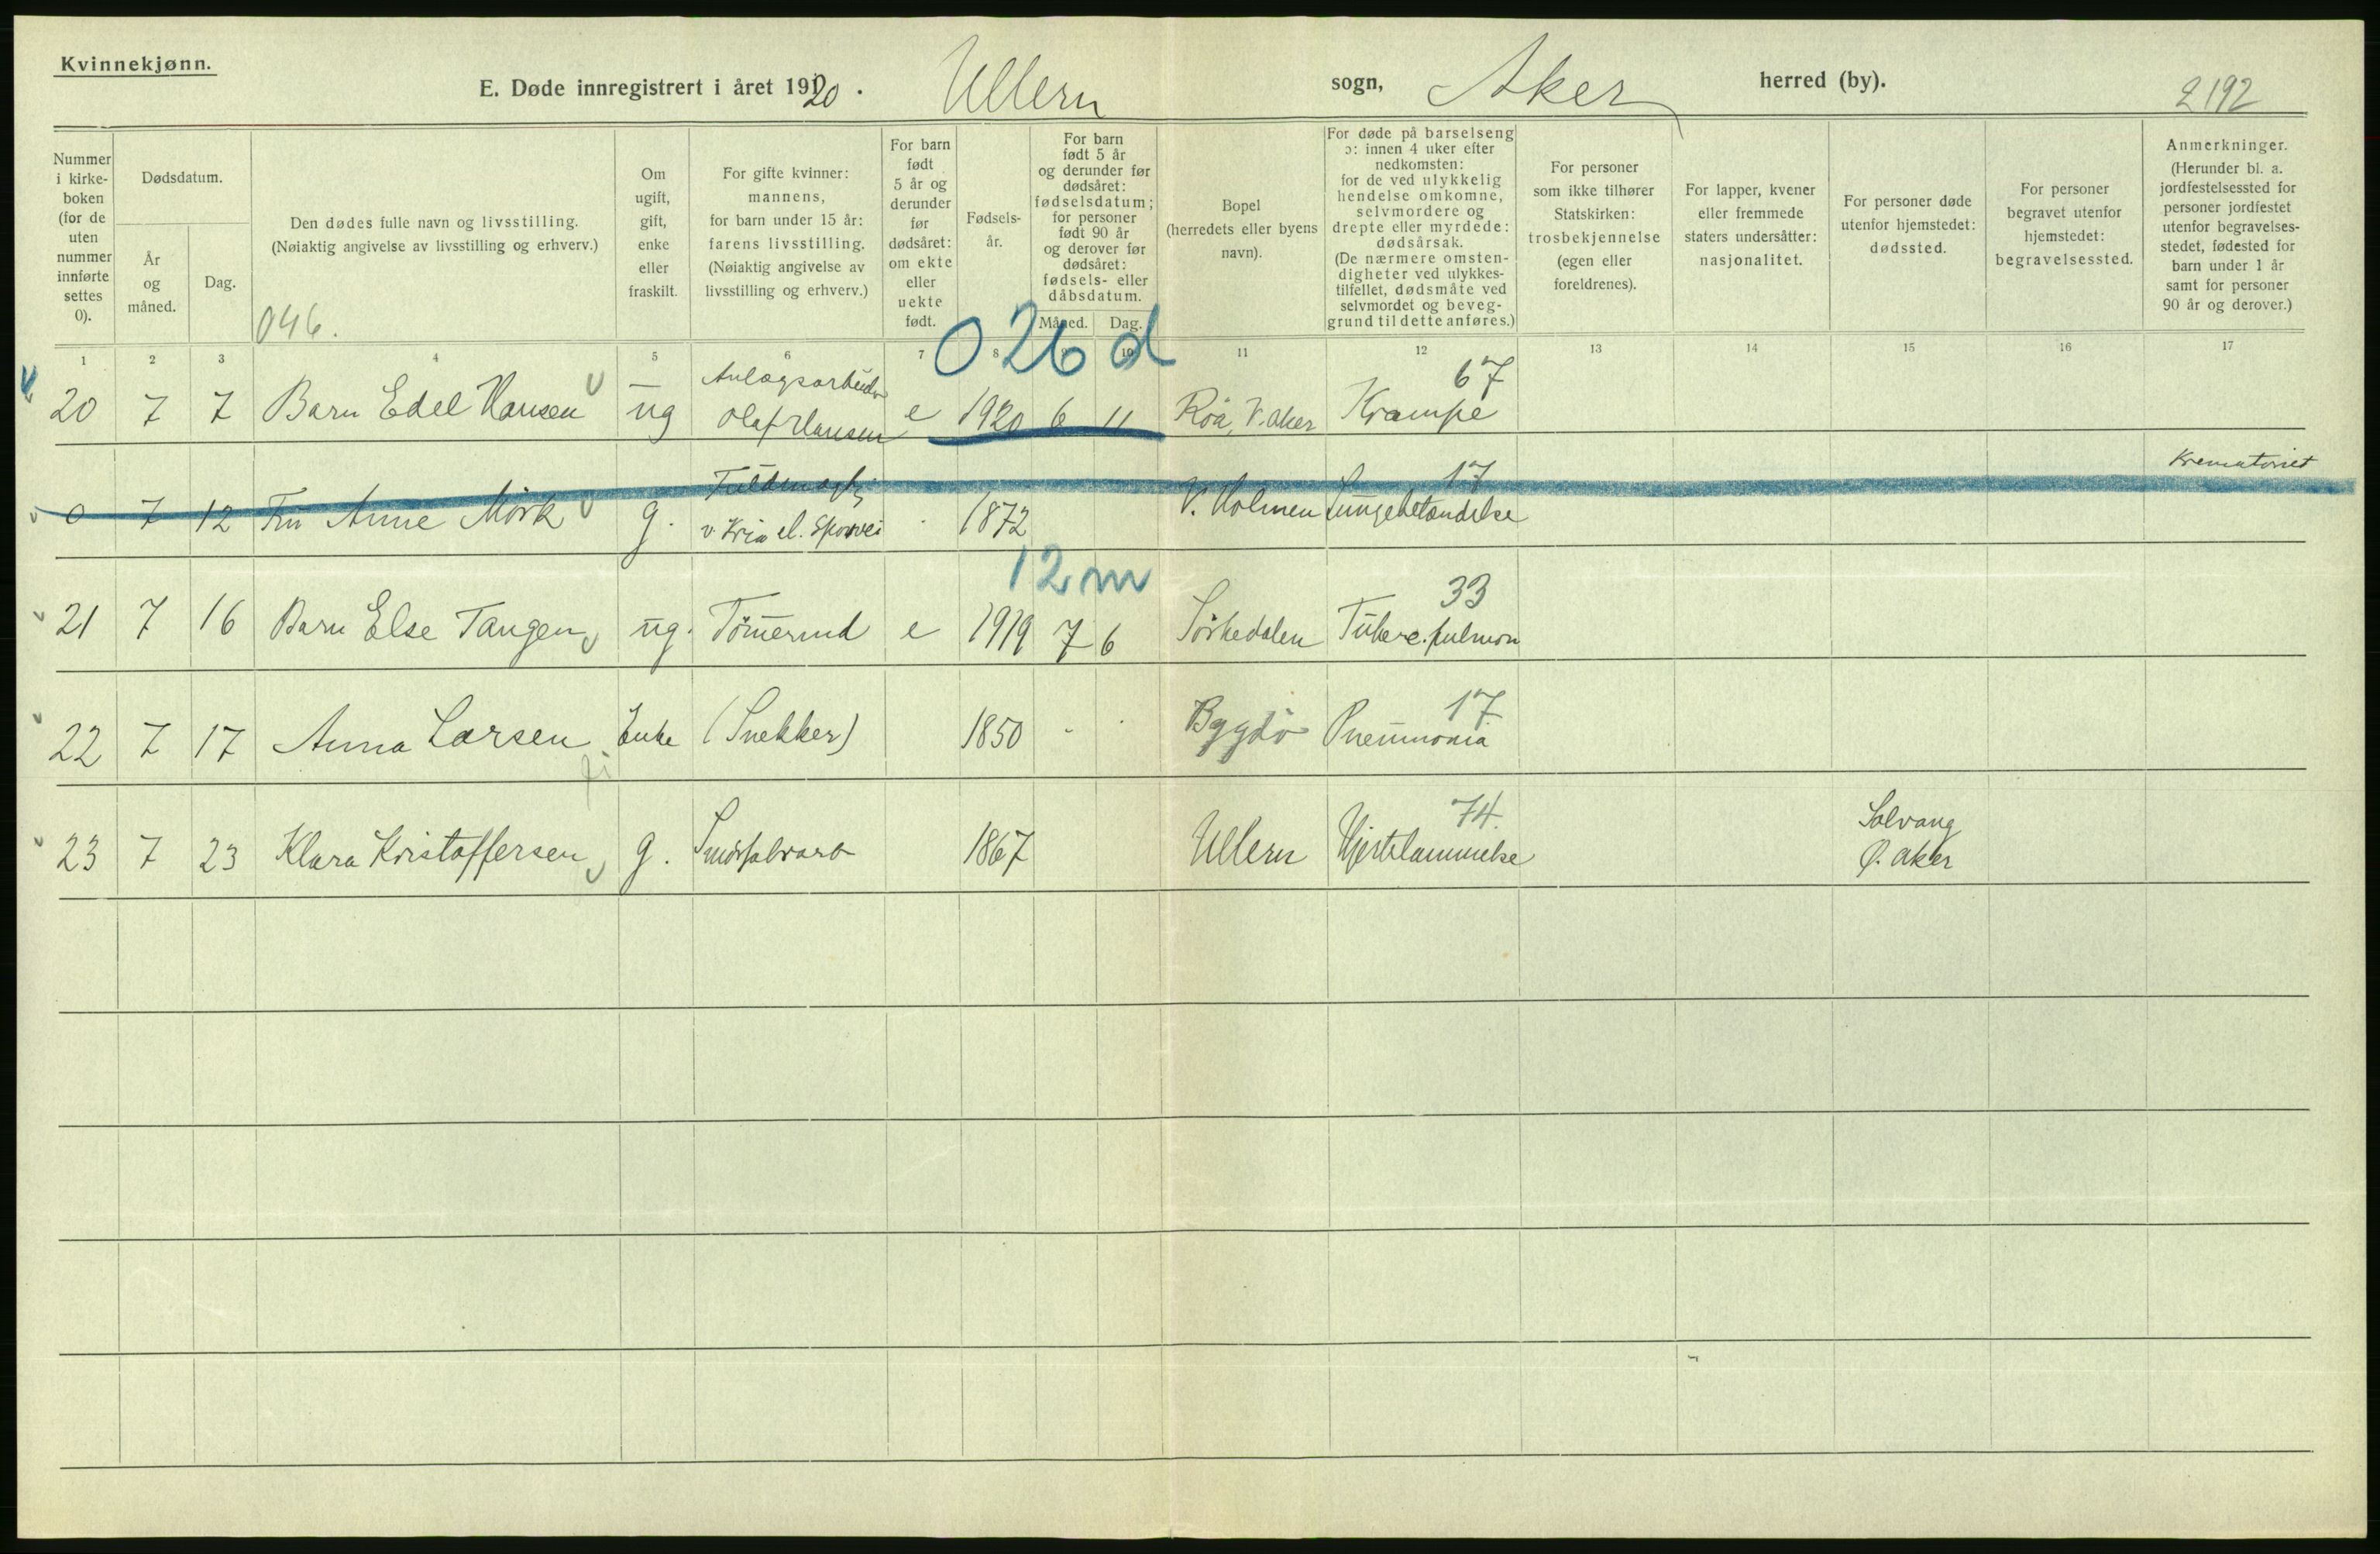 Kvinnekjønn.
E. Døde innregistrert i året 1920. Ullern sogn, Aker herred (by). 2192
Nummer i kirke- boken (for de uten nummer innførte settes 0).
Dødsdatum.
År og måned.
Dag.
Den dødes fulle navn og livsstilling.
(Nøiaktig angivelse av livsstilling og erhverv.)
046.
Om ugift, gift, enke eller fraskilt.
For gifte kvinner: mannens, for barn under 15 år: farens livsstilling. (Nøiaktig angivelse av livsstilling og erhverv.)
For barn født 5 år og derunder før dødsåret: om ekte eller uekte født.
Fødsels- år.
For barn født 5 år og derunder før dødsåret: fødselsdatum; for personer født 90 år og derover før dødsåret: fødsels- eller dåbsdatum.
Måned. Dag.
Bopel (herredets eller byens navn).
For døde på barselseng ɔ: innen 4 uker efter nedkomsten: for de ved ulykkelig hendelse omkomne, selvmordere og drepte eller myrdede: dødsårsak. (De nærmere omsten- digheter ved ulykkes- tilfellet, dødsmåte ved selvmordet og beveg- grund til dette anføres.)
For personer som ikke tilhører Statskirken: trosbekjennelse (egen eller foreldrenes).
For lapper, kvener eller fremmede staters undersåtter: nasjonalitet.
For personer døde utenfor hjemstedet: dødssted.
For personer begravet utenfor hjemstedet: begravelsessted.
Anmerkninger. (Herunder bl. a. jordfestelsessted for personer jordfestet utenfor begravelses- stedet, fødested for barn under 1 år samt for personer 90 år og derover.)
1 2 3 4 5 6 7 8 9 10 11 12 13 14 15 16 17
026 d
Anlægsarbeider 67
20 7 7 Barn Edel Hansen ug Olaf Hansen e 1920 6 11 Røa, V. Aker Krampe
Fuldmægtig 17 Krematoriet
0 7 12 Fru Anne Mörk g. v Kria el. Sporvei 1872 V. Holmen Lungebetændelse
12 m
33
21 7 16 Barn Else Tangen ug. Tömermd e 1919 7 6 Sörkedalen Tuberc. pulmon
17
22 7 17 Anna Larsen Enke (Snekker) 1850 - Bygdö Pneumonia
74. Solvang
23 7 23 Klara Kristoffersen g. 1867 Ullern Hjertelammelse Ø. Aker